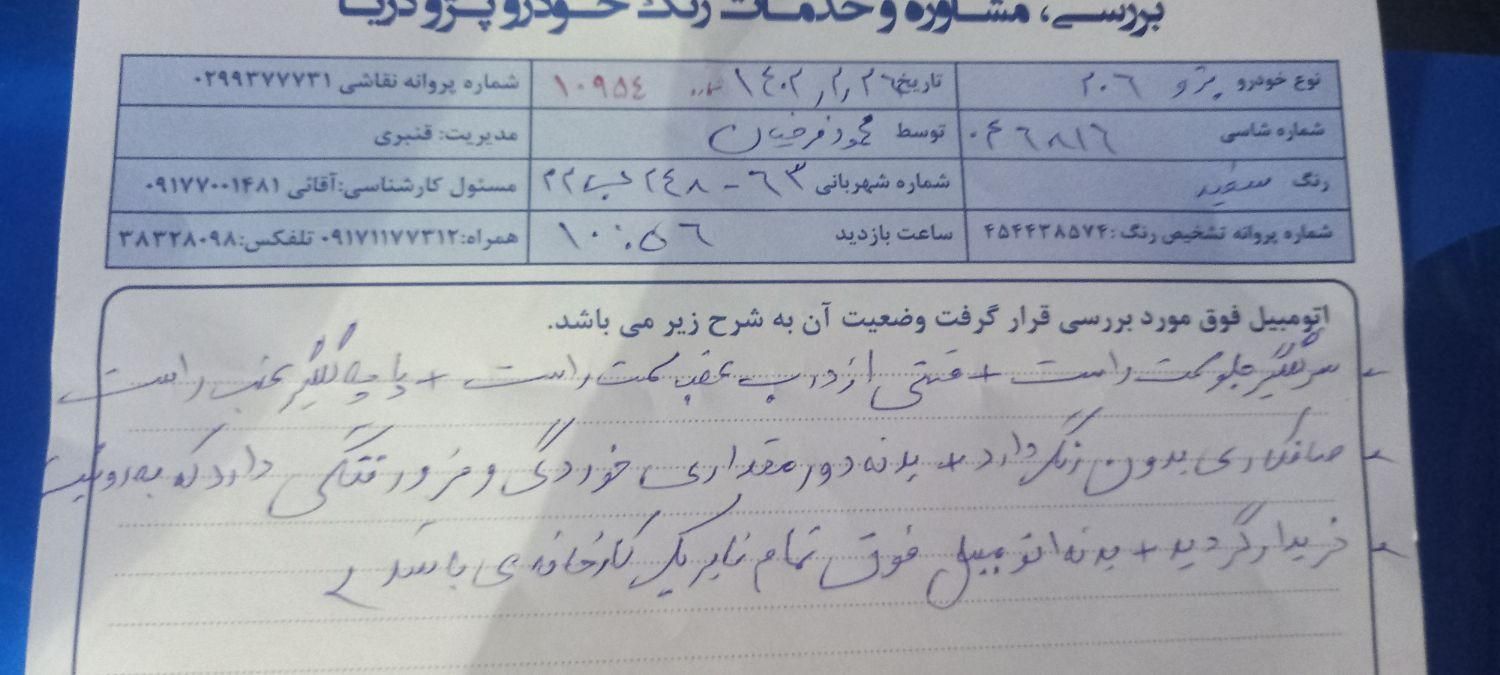 بررسی، مشاوره و خدمات رنگ خودرو پژو دریا
نوع خودرو پژو ۲۰۶ تاریخ ۱۴۰۲/۲/۲۶ ۱۰۹۵۴ شماره پروانه نقاشی ۰۲۹۹۳۷۷۷۳۱
شماره شاسی ۰۴۶۸۱۶ توسط محمود فرخیان مدیریت: قنبری
رنگ سفید شماره شهربانی ۶۳ - ۲۴۸ ب ۲۲ مسئول کارشناسی: آقائی ۰۹۱۷۷۰۰۱۴۸۱
شماره پروانه تشخیص رنگ: ۴۵۴۴۳۸۵۷۴ ساعت بازدید ۱۰:۵۶ همراه: ۰۹۱۷۱۱۷۷۳۱۲ تلفکس: ۳۸۳۲۸۰۹۸
اتومبیل فوق مورد بررسی قرار گرفت وضعیت آن به شرح زیر می باشد.
سرگلگیر جلو سمت راست + قسمتی از درب عقب سمت راست + پاچه گلگیر عقب راست
صافکاری بدون رنگ دارد + بدنه دور مقداری خوردگی و فرورفتگی دارد که به رویت
خریدار گردید + بدنه اتومبیل فوق تمام فابریک کارخانه می باشد